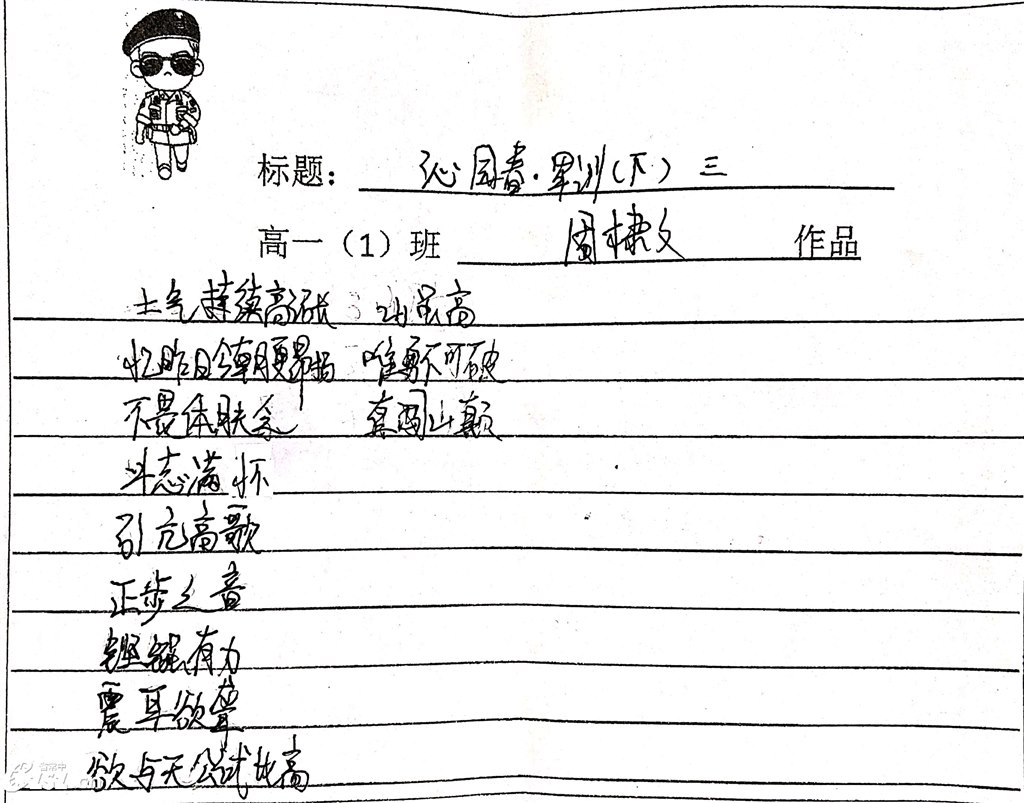 标题：沁园春·军训(下) 三
高一（1）班 周棣文 作品
士气持续高涨 高
忆昨日今朝 昂扬 唯勇不可破
不畏体肤 真 山巅
斗志满怀
引亢高歌
正步之音
铿锵有力
震耳欲聋
欲与天公试比高